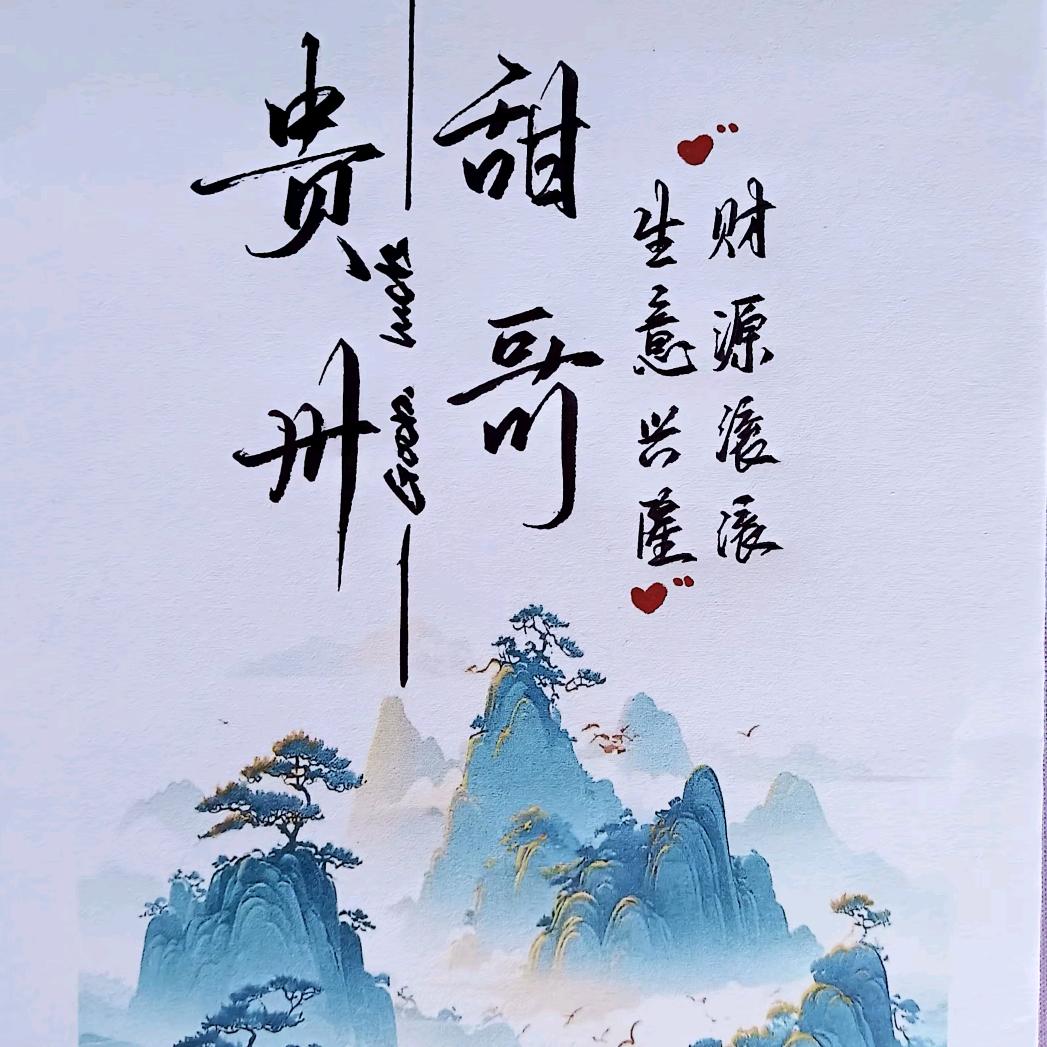 贵州
Good luck
甜哥
财源滚滚
生意兴隆